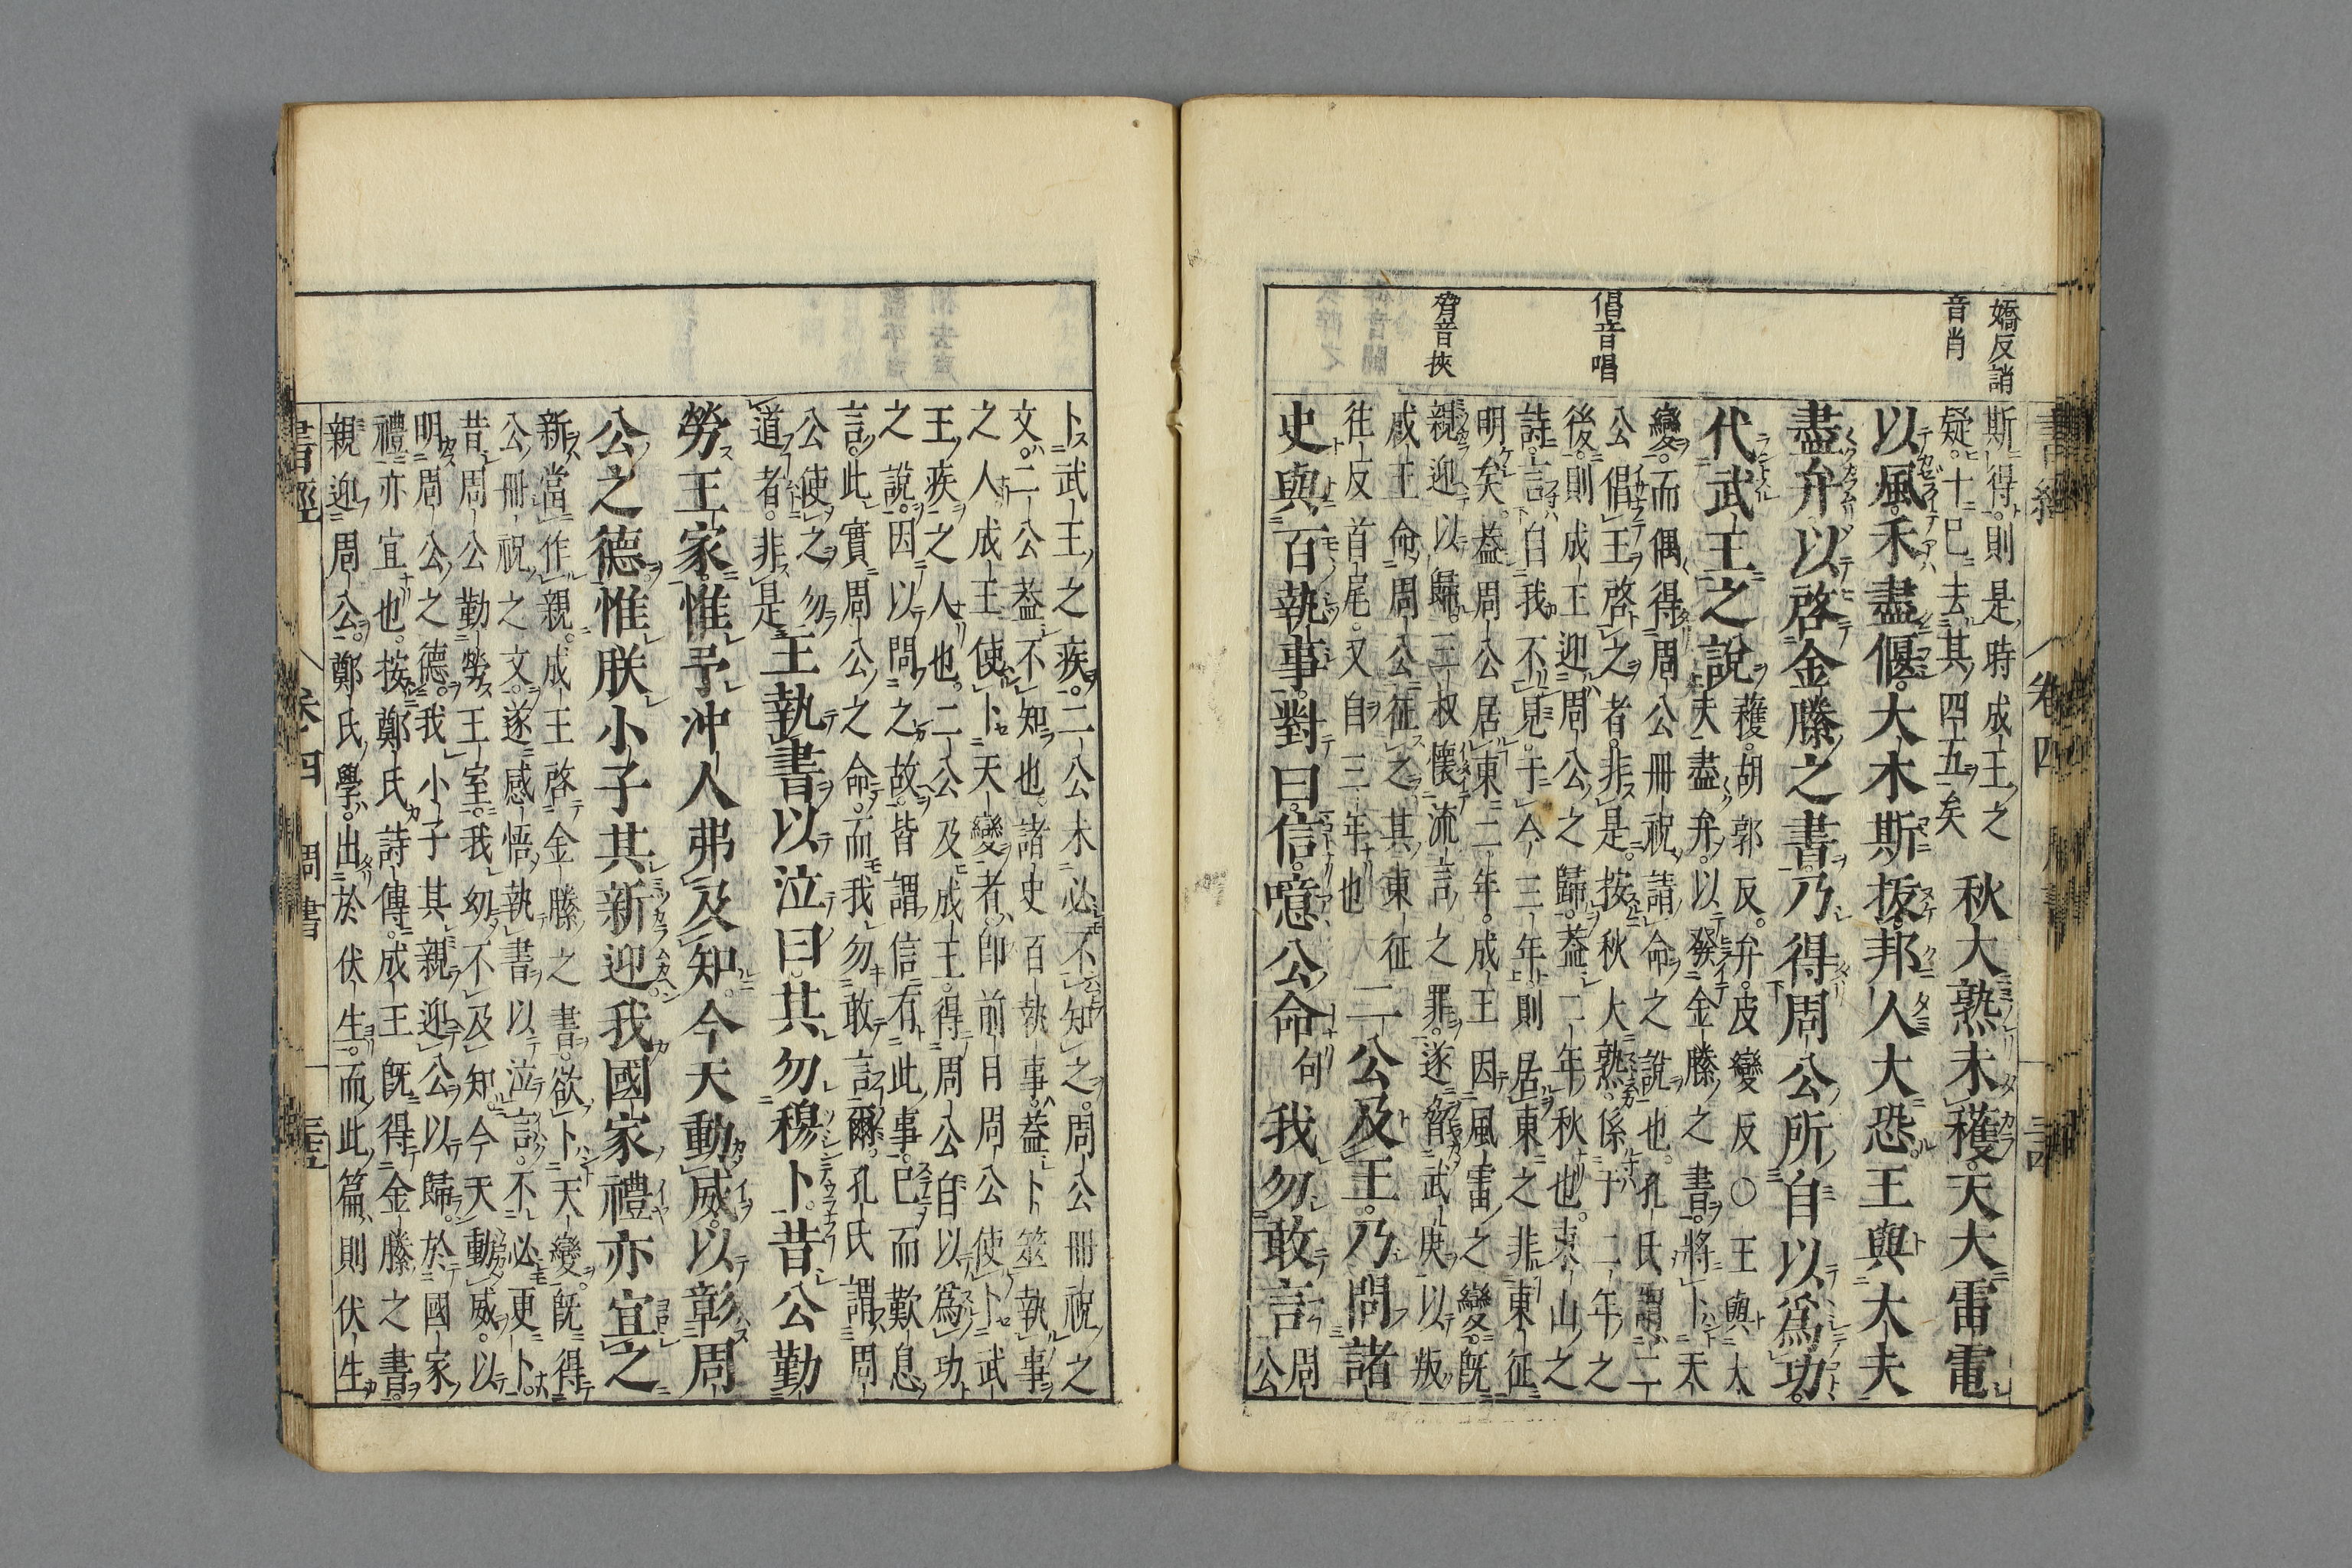 嬌反誚
音肖
倡音唱
脅音挾
斯得則是時成王之
疑十已去其四五矣
秋大熟未穫天大雷電
以風禾盡偃大木斯拔邦人大恐王與大夫
盡弁以啓金縢之書乃得周公所自以爲功
代武王之說
穫胡郭反弁皮變反○王與大
夫盡弁以發金縢之書將卜天
變而偶得周公冊祝請命之說也孔氏謂二
公倡王啓之者非是按秋大熟係于二年之
後則成王迎周公之歸蓋二年秋也東山之
詩言自我不見于今三年則居東之非東征
明矣蓋周公居東二年成王因風雷之變既
親迎以歸三叔懷流言之罪遂脅武庚以叛
成王命周公征之其東征
往反首尾又自三年也
二公及王乃問諸
史與百執事對曰信噫公命
句
我勿敢言
周
公
卜武王之疾二公未必不知之周公冊祝之
文二公蓋不知也諸史百執事蓋卜筮執事
之人成王使卜天變者卽前日周公使卜武
王疾之人也二公及成王得周公自以爲功
之說因以問之故皆謂信有此事已而歎息
言此實周公之命而我勿敢言爾孔氏謂周
公使之勿
道者非是
王執書以泣曰其勿穆卜昔公勤
勞王家惟予冲人弗及知今天動威以彰周
公之德惟朕小子其新迎我國家禮亦宜之
新當作親成王啓金縢之書欲卜天變既得
公冊祝之文遂感悟執書以泣言不必更卜
昔周公勤勞王室我幼不及知今天動威以
明周公之德我小子其親迎公以歸於國家
禮亦宜也按鄭氏詩傳成王既得金縢之書
親迎周公鄭氏學出於伏生而此篇則伏生
書經
卷四
周書